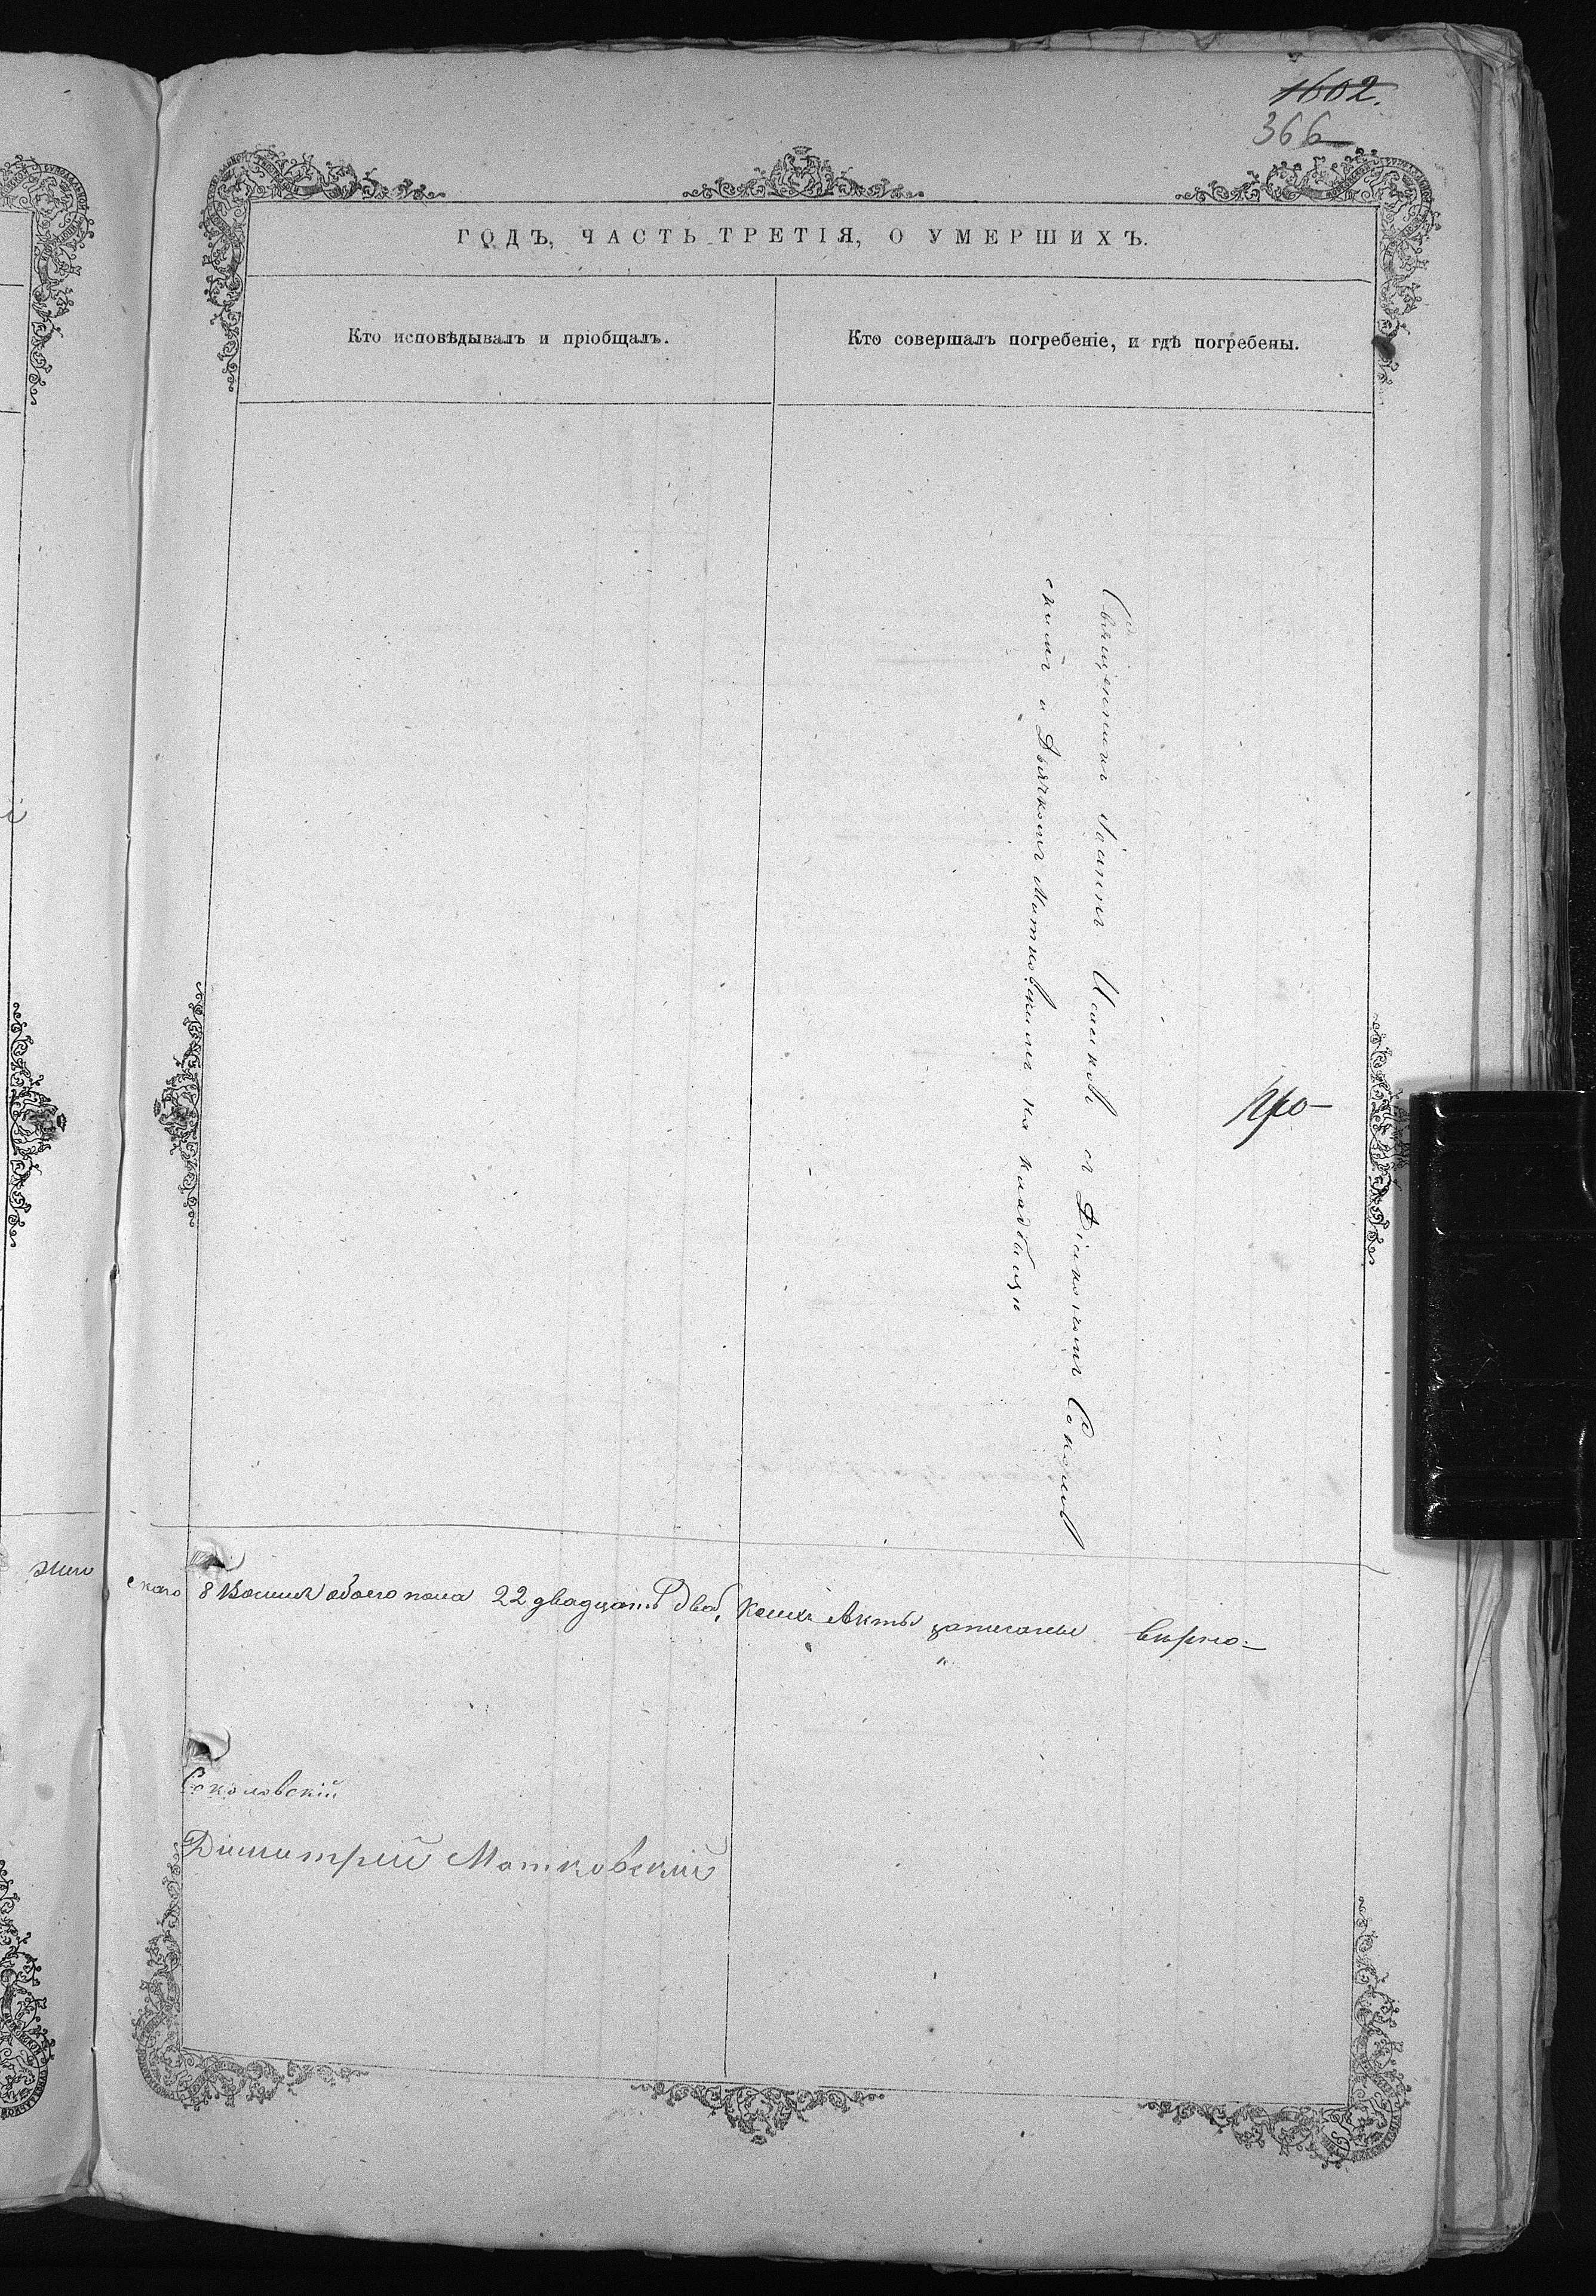 1602.
366
ГОДЪ, ЧАСТЬ ТРЕТІЯ, О УМЕРШИХЪ.
Кто исповѣдывалъ и пріобщалъ.
Кто совершалъ погребеніе, и гдѣ погребены.
Священникъ Іоаннъ Исаковъ съ Діакономъ Соколов
скимъ и Дьячкомъ Матковскимъ на кладбищѣ
жен
скаго 8 Восимъ обоего пола 22 двадцать два, коихъ Акты записаны вѣрно
Соколовскій
Димитрій Матковскій